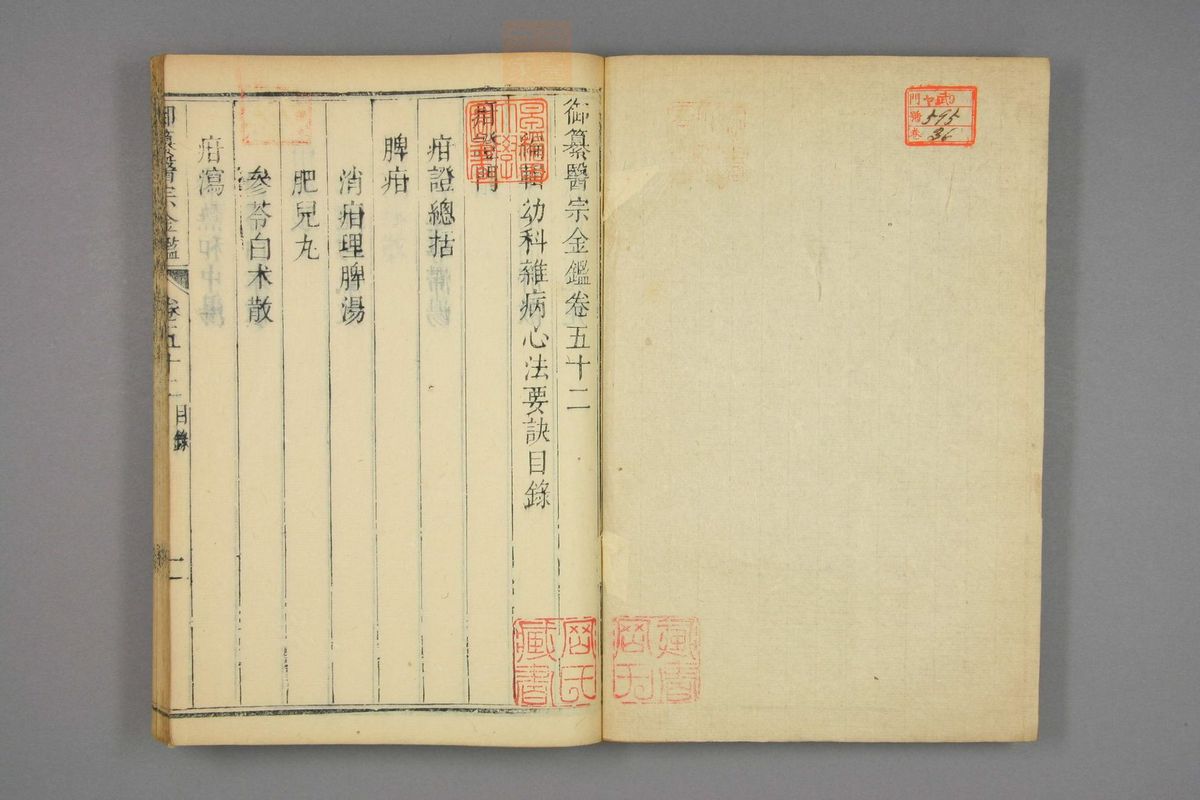 御纂醫宗金鑑卷五十二
編輯幼科雜病心法要訣目錄
疳證門
疳證總括
脾疳
消疳理脾湯
肥兒丸
參苓白朮散
疳瀉
御纂醫宗金鑑 卷五十二 目錄 一
門 ヤ
號 595
卷 36
岡氏藏書